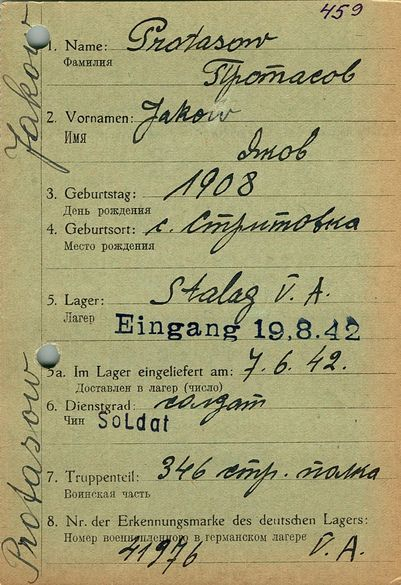 459
1. Name: Protasow
Фамилия
Протасов
2. Vornamen: Jakow
Имя
Яков
3. Geburtstag: 1908
День рождения
4. Geburtsort: с. Стритовка
Место рождения
5. Lager: Stalag V. A.
Лагерь
Eingang 19.8.42
5a. Im Lager eingeliefert am: 7.6.42.
Доставлен в лагерь (число)
6. Dienstgrad: солдат
Чин Soldat
7. Truppenteil: 346 стр. полка
Воинская часть
8. Nr. der Erkennungsmarke des deutschen Lagers:
Номер военнопленного в германском лагере
41976 V. A.
Protasow Jakow